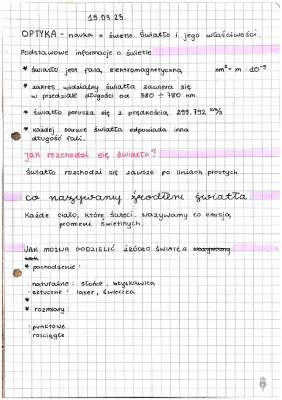 15.03.23.
OPTYKA - nauka o świetle. Światło i jego właściwości.
Podstawowe informacje o świetle
* światło jest falą elektromagnetyczną nm² = m · 10⁻⁹
* zakres widzialny światła zawiera się
w przedziale długości od 380 ÷ 780 nm
* światło porusza się z prędkością 299.792 km/s
* każdej barwie światła odpowiada inna
długość fali.
jak rozchodzi się światło?
Światło rozchodzi się zawsze po liniach prostych.
co nazywamy źródłem światła
Każde ciało, które świeci. Nazywamy to emisją
promieni świetlnych.
JAK MOŻNA PODZIELIĆ ŹRÓDŁO ŚWIATŁA
* pochodzenie:
naturalne: słońce, błyskawica
sztuczne: laser, świeczka
*
* rozmiary:
punktowe
rozciągłe